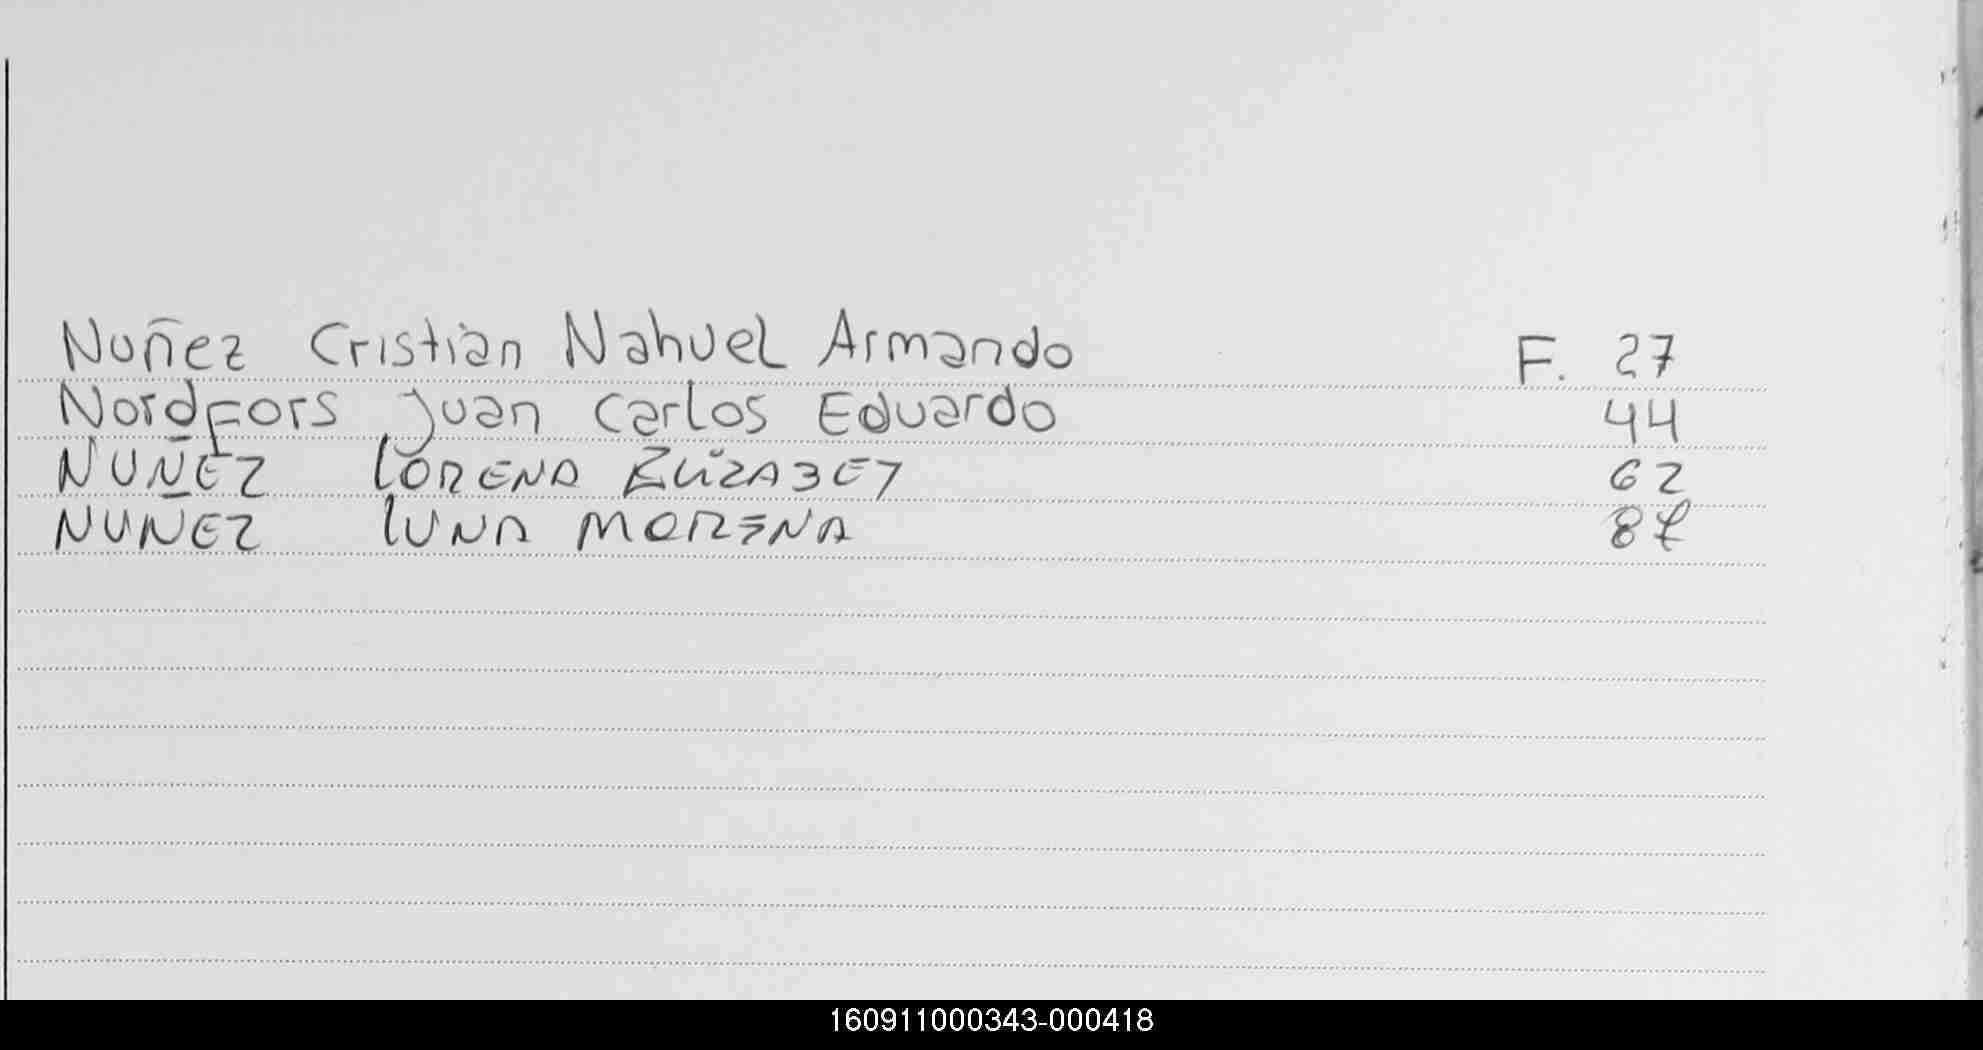 Nuñez Cristian Nahuel Armando F. 27
Nordfors Juan Carlos Eduardo 44
NUÑEZ LORENA ELIZABET 62
NUÑEZ LUNA MORENA 87
160911000343-000418